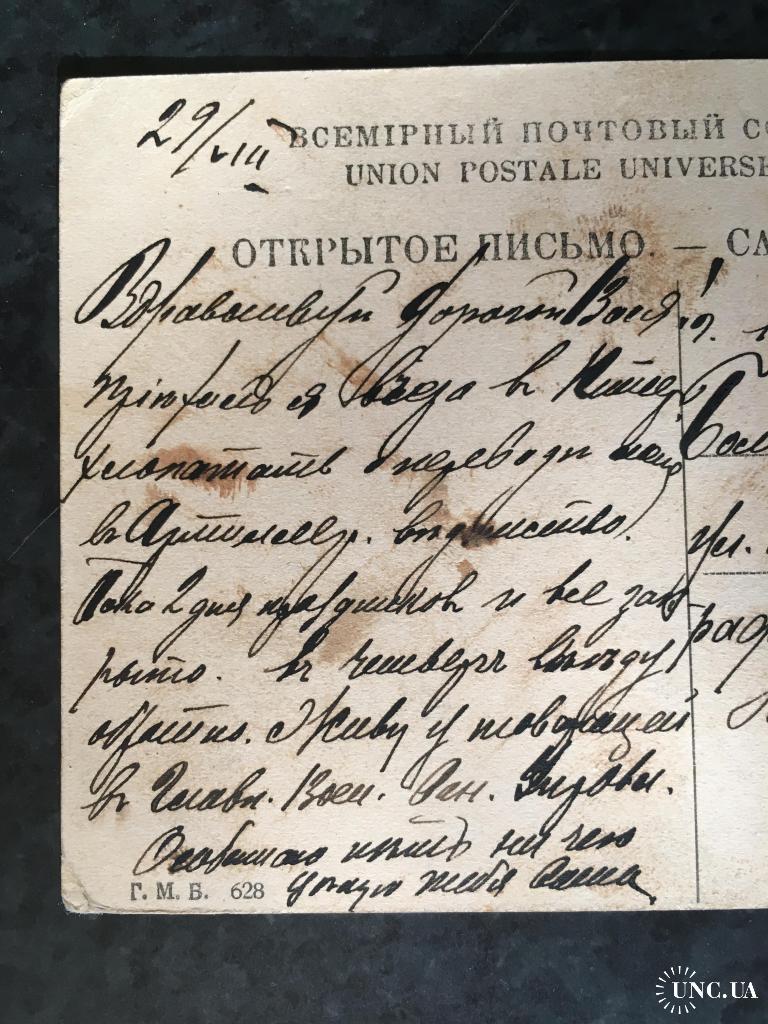 29/VIII
ВСЕМІРНЫЙ ПОЧТОВЫЙ СО
UNION POSTALE UNIVERSE
ОТКРЫТОЕ ПИСЬМО. — CA
Здравствуй дорогой Вася!
я вчера в
хлопотать о переводе
в Артиллер. ведомство.
Пока 2 дня праздников и все зак
рыто. в четверг выеду
обратно. Живу у товарищей
в Главн. Воен. Сан. Управл.
Особенного нетъ ни чего
целую тебя Саша.
Г. М. Б. 628
ул.
UNC.UA